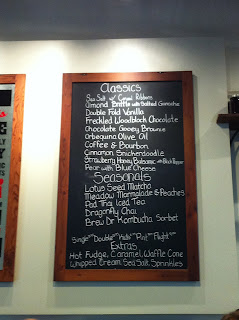 Classics
Sea Salt w/ Caramel Ribbons
Almond Brittle with Salted Ganache
Double Fold Vanilla
Freckled Woodblock Chocolate
Chocolate Gooey Brownie
Arbequina Olive Oil
Coffee & Bourbon
Cinnamon Snickerdoodle
Strawberry Honey Balsamic with Black Pepper
Pear with Blue Cheese
Seasonals
Lotus Seed Matcha
Meadow Marmalade & Peaches
Pad Thai Iced Tea
Dragonfly Chai
Brew Dr Kombucha Sorbet
Single Double Kids Pint Flight
Extras
Hot Fudge, Caramel, Waffle Cone
Whipped Cream, Sea Salt, Sprinkles